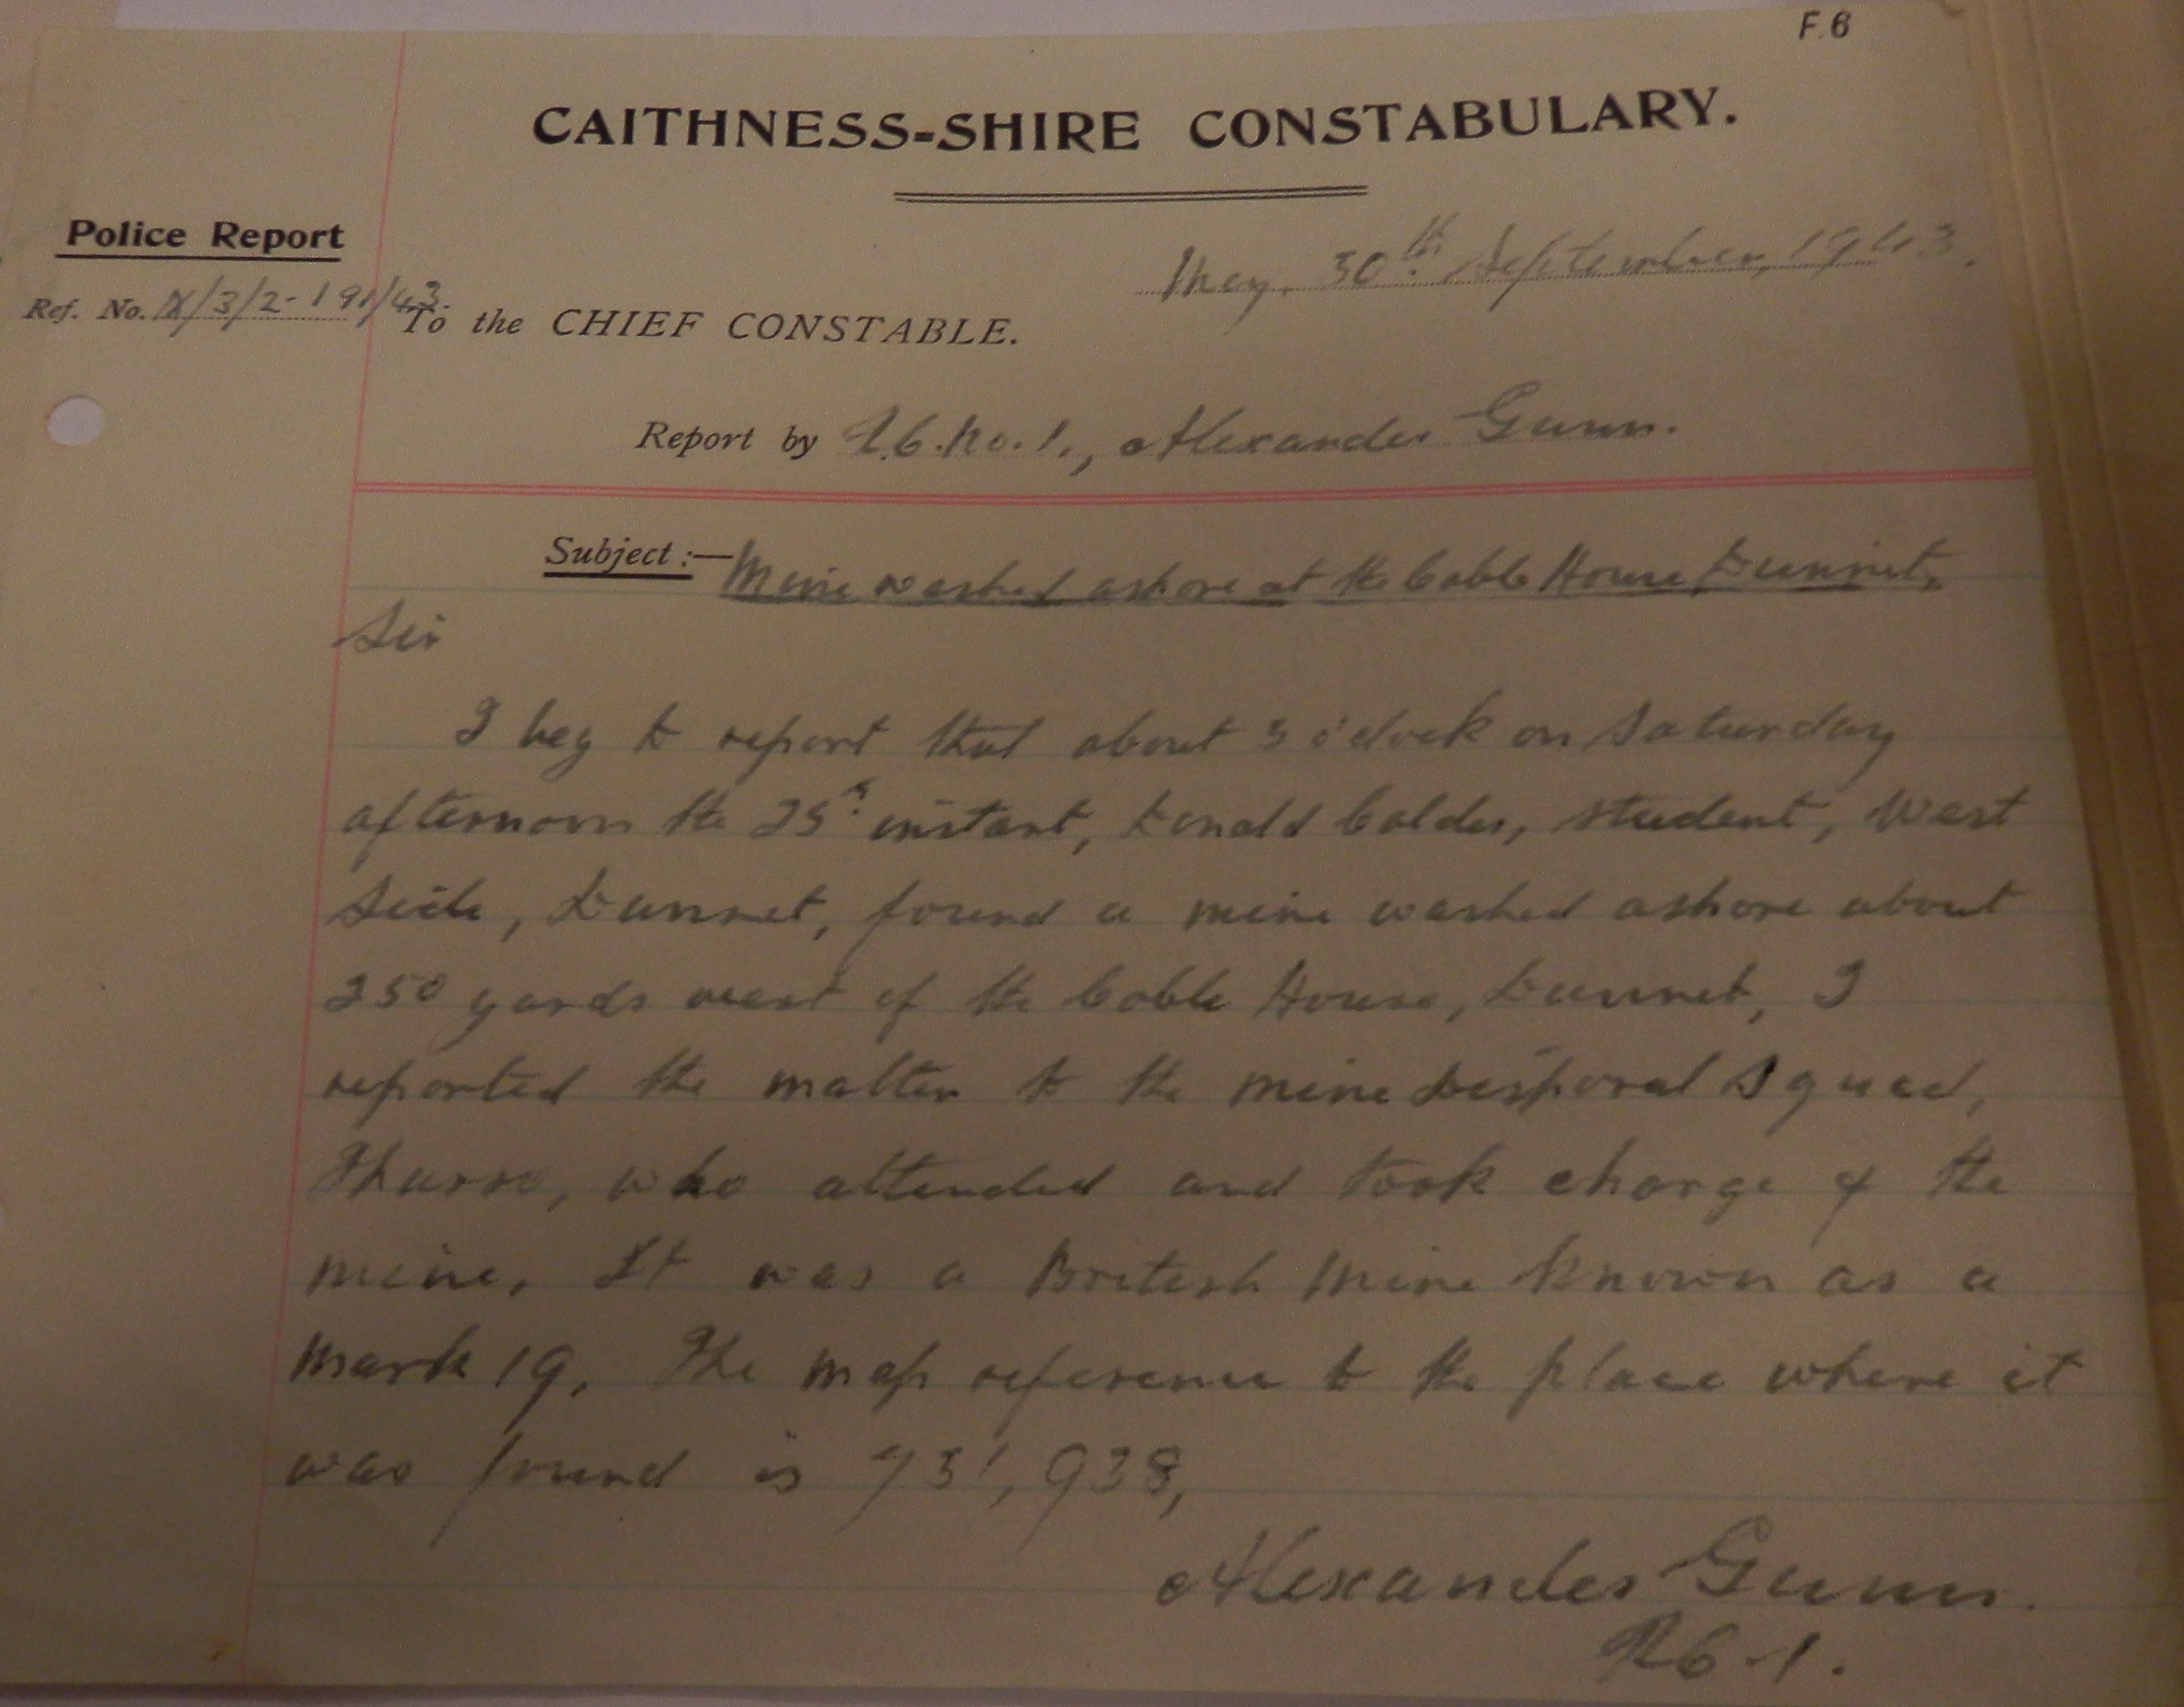 F.6
CAITHNESS-SHIRE CONSTABULARY.
Police Report
Mey, 30th September, 1943.
Ref. No. X/3/2-191/43.
To the CHIEF CONSTABLE.
Report by P.C. No. 1., Alexander Gunn.
Subject :— Mine washed ashore at the Coble House Dunnet.
Sir
I beg to report that about 5 o'clock on Saturday
afternoon the 25th instant, Donald Calder, student, West
Side, Dunnet, found a mine washed ashore about
250 yards west of the Coble House, Dunnet, I
reported the matter to the Mine Disposal Squad,
Thurso, who attended and took charge of the
mine. It was a British Mine known as a
Mark 19. The map reference to the place where it
was found is 731, 938,
Alexander Gunn.
P.C. 1.